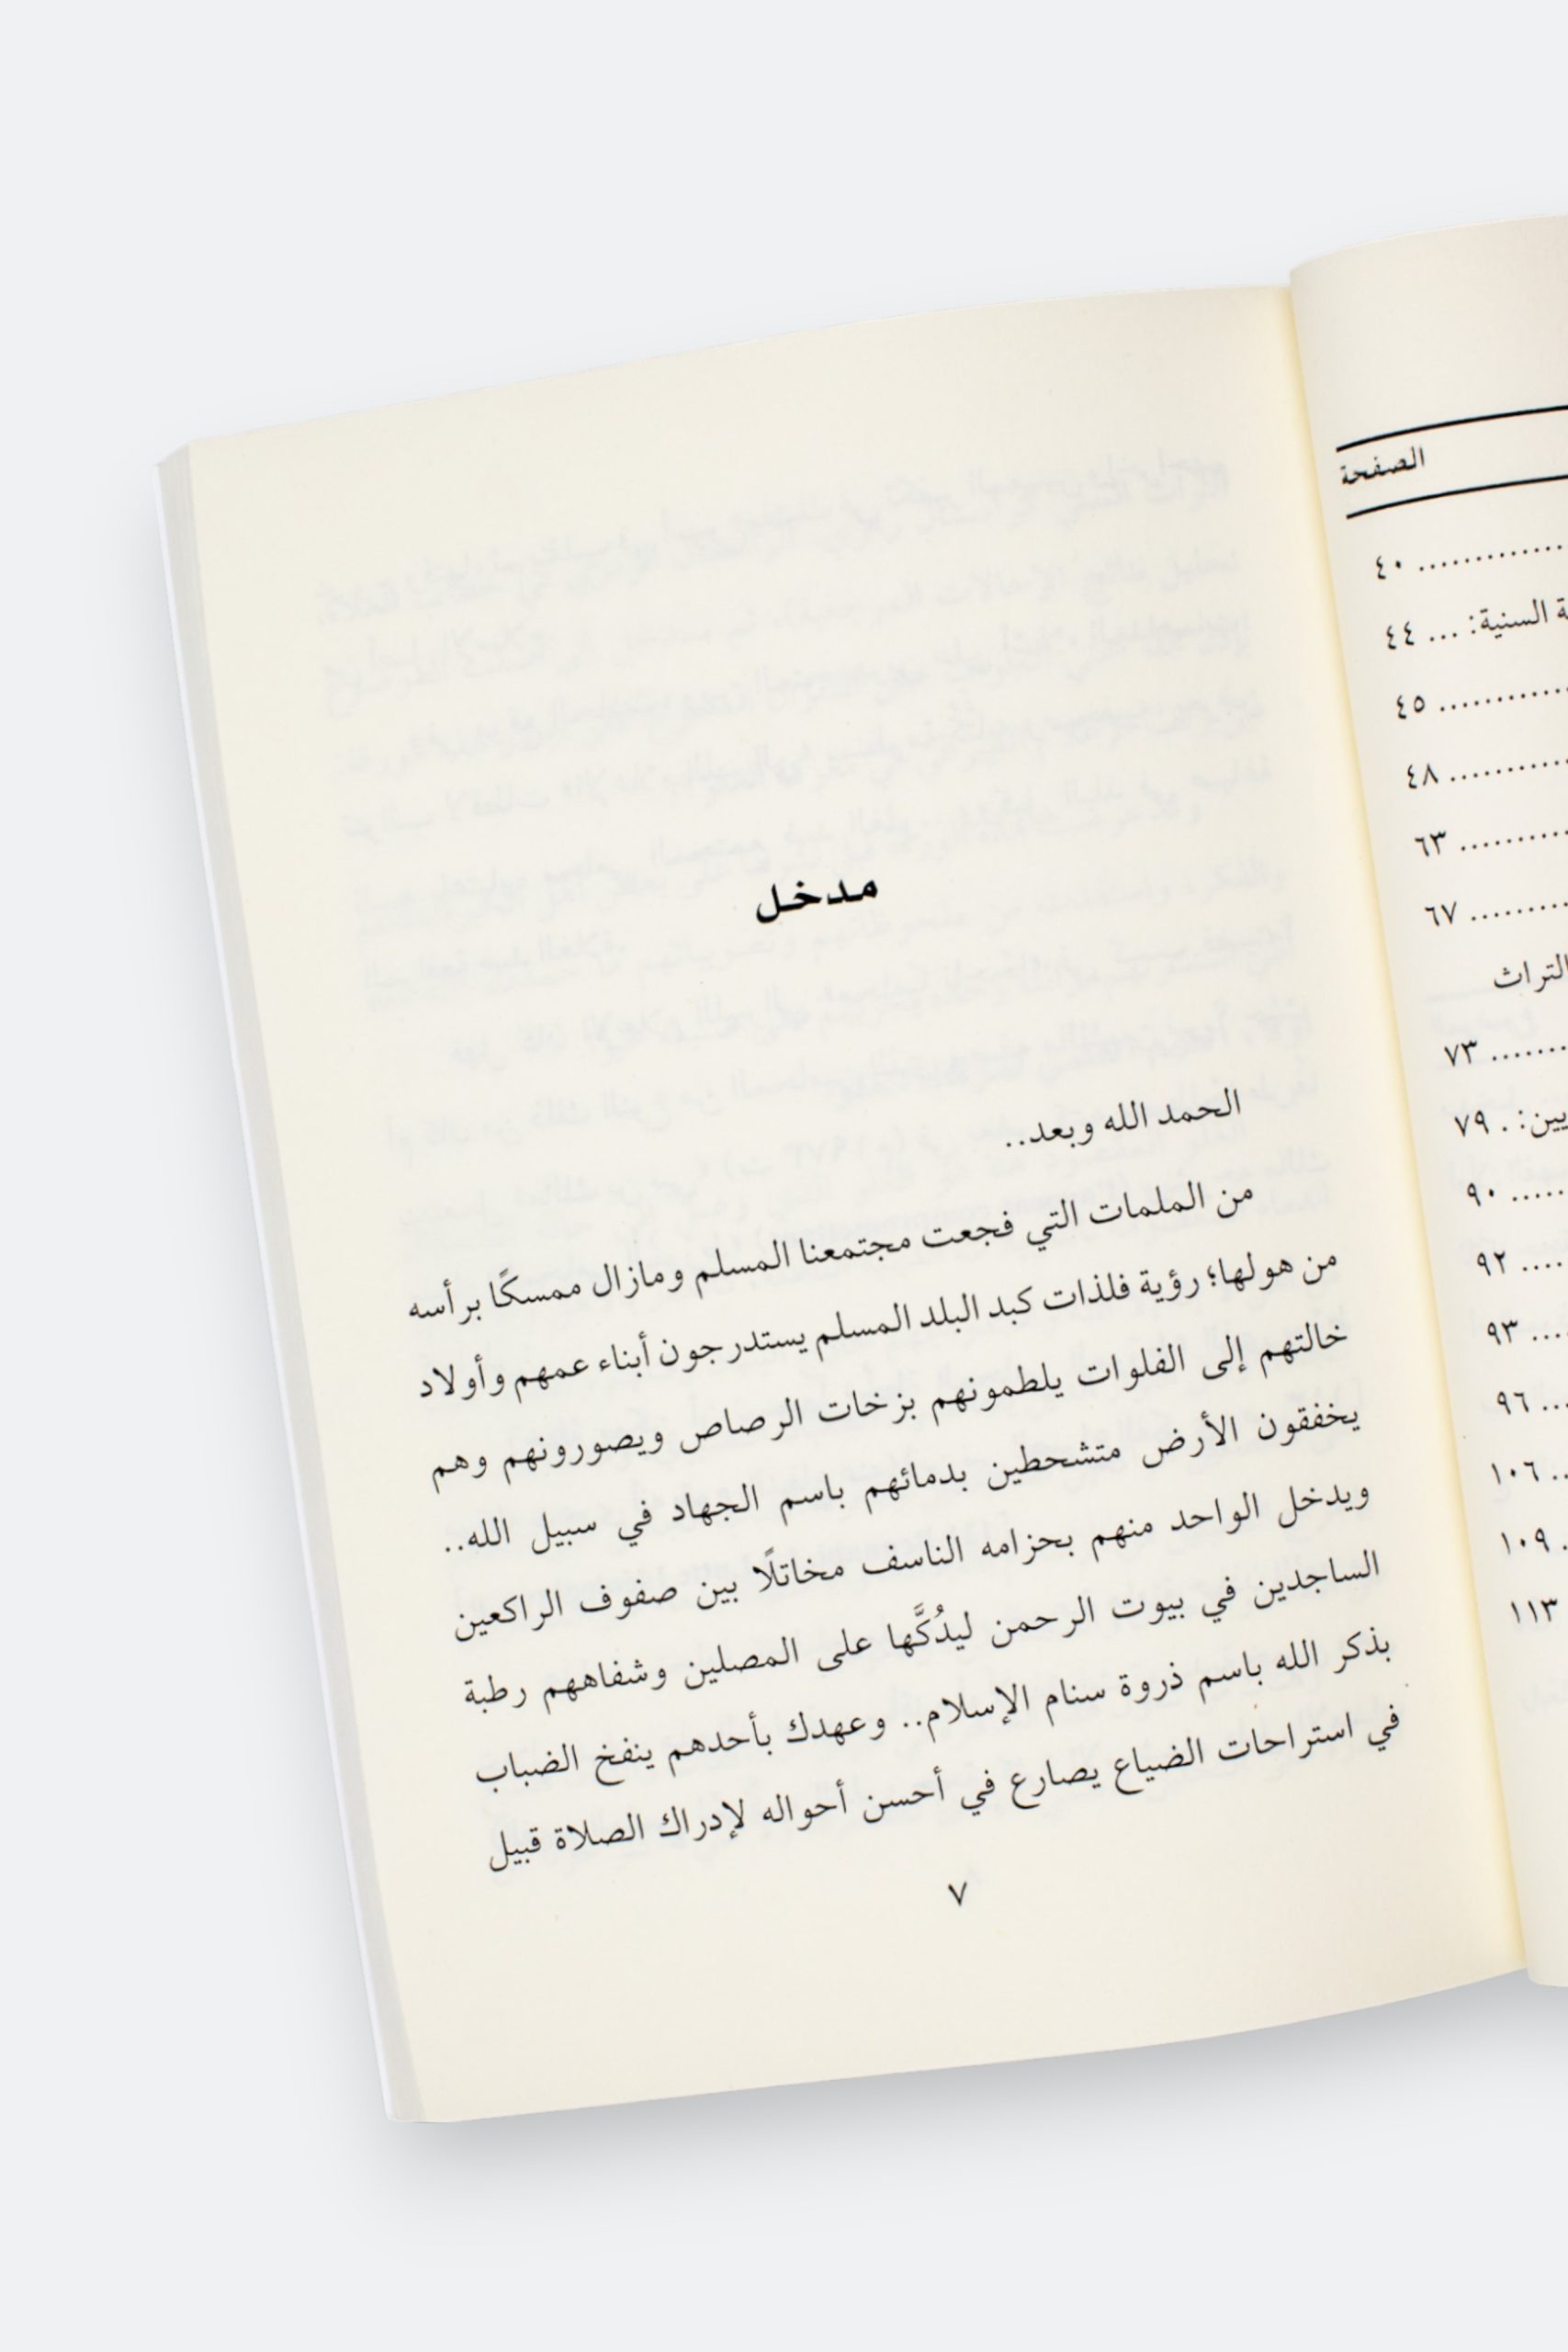 الصفحة
............. ٤٠
ة السنية: ... ٤٤
............ ٤٥
........... ٤٨
.......... ٦٣
......... ٦٧
التراث
....... ٧٣
يين: . ٧٩
..... ٩٠
.... ٩٢
... ٩٣
... ٩٦
.. ١٠٦
. ١٠٩
١١٣
مدخل
الحمد الله وبعد..
من الملمات التي فجعت مجتمعنا المسلم ومازال ممسكًا برأسه
من هولها؛ رؤية فلذات كبد البلد المسلم يستدرجون أبناء عمهم وأولاد
خالتهم إلى الفلوات يلطمونهم بزخات الرصاص ويصورونهم وهم
يخفقون الأرض متشحطين بدمائهم باسم الجهاد في سبيل الله..
ويدخل الواحد منهم بحزامه الناسف مخاتلًا بين صفوف الراكعين
الساجدين في بيوت الرحمن ليدُكَّها على المصلين وشفاههم رطبة
بذكر الله باسم ذروة سنام الإسلام.. وعهدك بأحدهم ينفخ الضباب
في استراحات الضياع يصارع في أحسن أحواله لإدراك الصلاة قبيل
٧